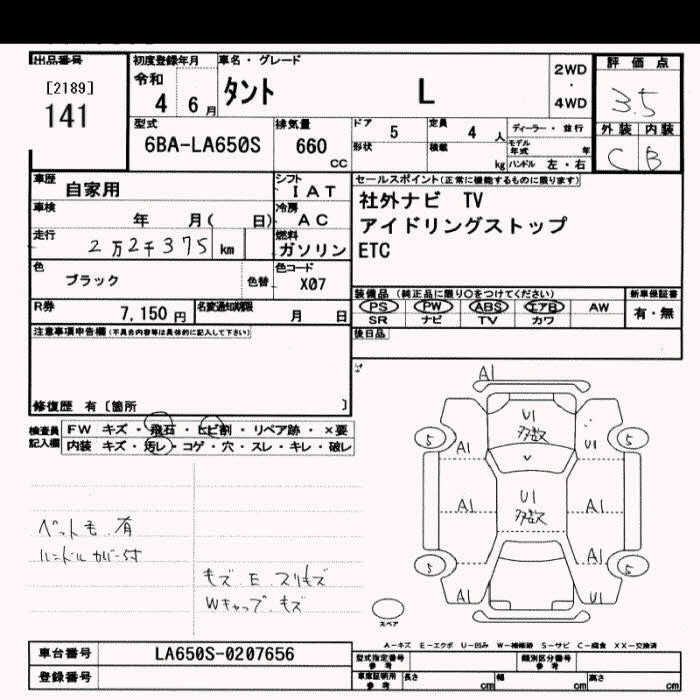 出品番号
[2189]
141
初度登録年月
令和
4 6月
車名・グレード
タント L
2WD
・
4WD
評価点
3.5
外装 内装
C B
型式
6BA-LA650S
排気量
660
cc
ドア 5
定員 4人
ディーラー・並行
形状
積載
kg
モデル年式 年
ハンドル 左・右
車歴
自家用
シフト
IAT
車検
年 月( 日)
冷房
AC
走行
2万2千375 km
燃料
ガソリン
色
ブラック
色替
色コード
X07
R券
7,150円
名変通知期限
月 日
セールスポイント(正常に機能するものに限ります)
社外ナビ TV
アイドリングストップ
ETC
装備品(純正品に限り○をつけてください)
新車保証書
PS PW ABS エアB AW
有・無
SR ナビ TV カワ
後日品
注意事項申告欄(不具合内容等は具体的に記入して下さい)
修復歴 有〔箇所 〕
検査員記入欄
FW キズ・飛石・ヒビ割・リペア跡・×要
内装 キズ・汚レ・コゲ・穴・スレ・キレ・破レ
A1
U1
多数
5 A1 U1 5
A1 U1 A1
多数
A1
5 5
U1 A1
ペット毛 有
ハンドルカバー付
キズ E スリキズ
Wキャップ キズ
スペア
A-キズ E-エクボ U-凹み W-補修跡 S-サビ C-腐食 XX-交換済
車台番号
LA650S-0207656
登録番号
型式指定番号
参考
類別区分番号
参考
車庫証明用
参考
長さ cm
幅 cm
高さ cm